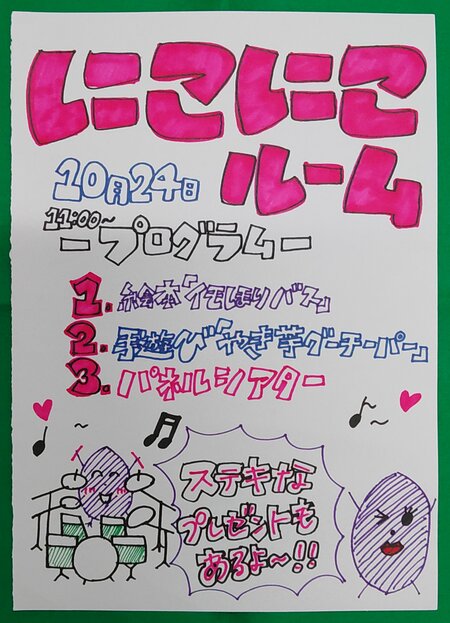 にこにこ
ルーム
10月24日
11:00〜
ープログラムー
1. 絵本「イモほりバス」
2. 手遊び「やき芋グーチーパー」
3. パネルシアター
ステキな
プレゼントも
あるよ〜!!